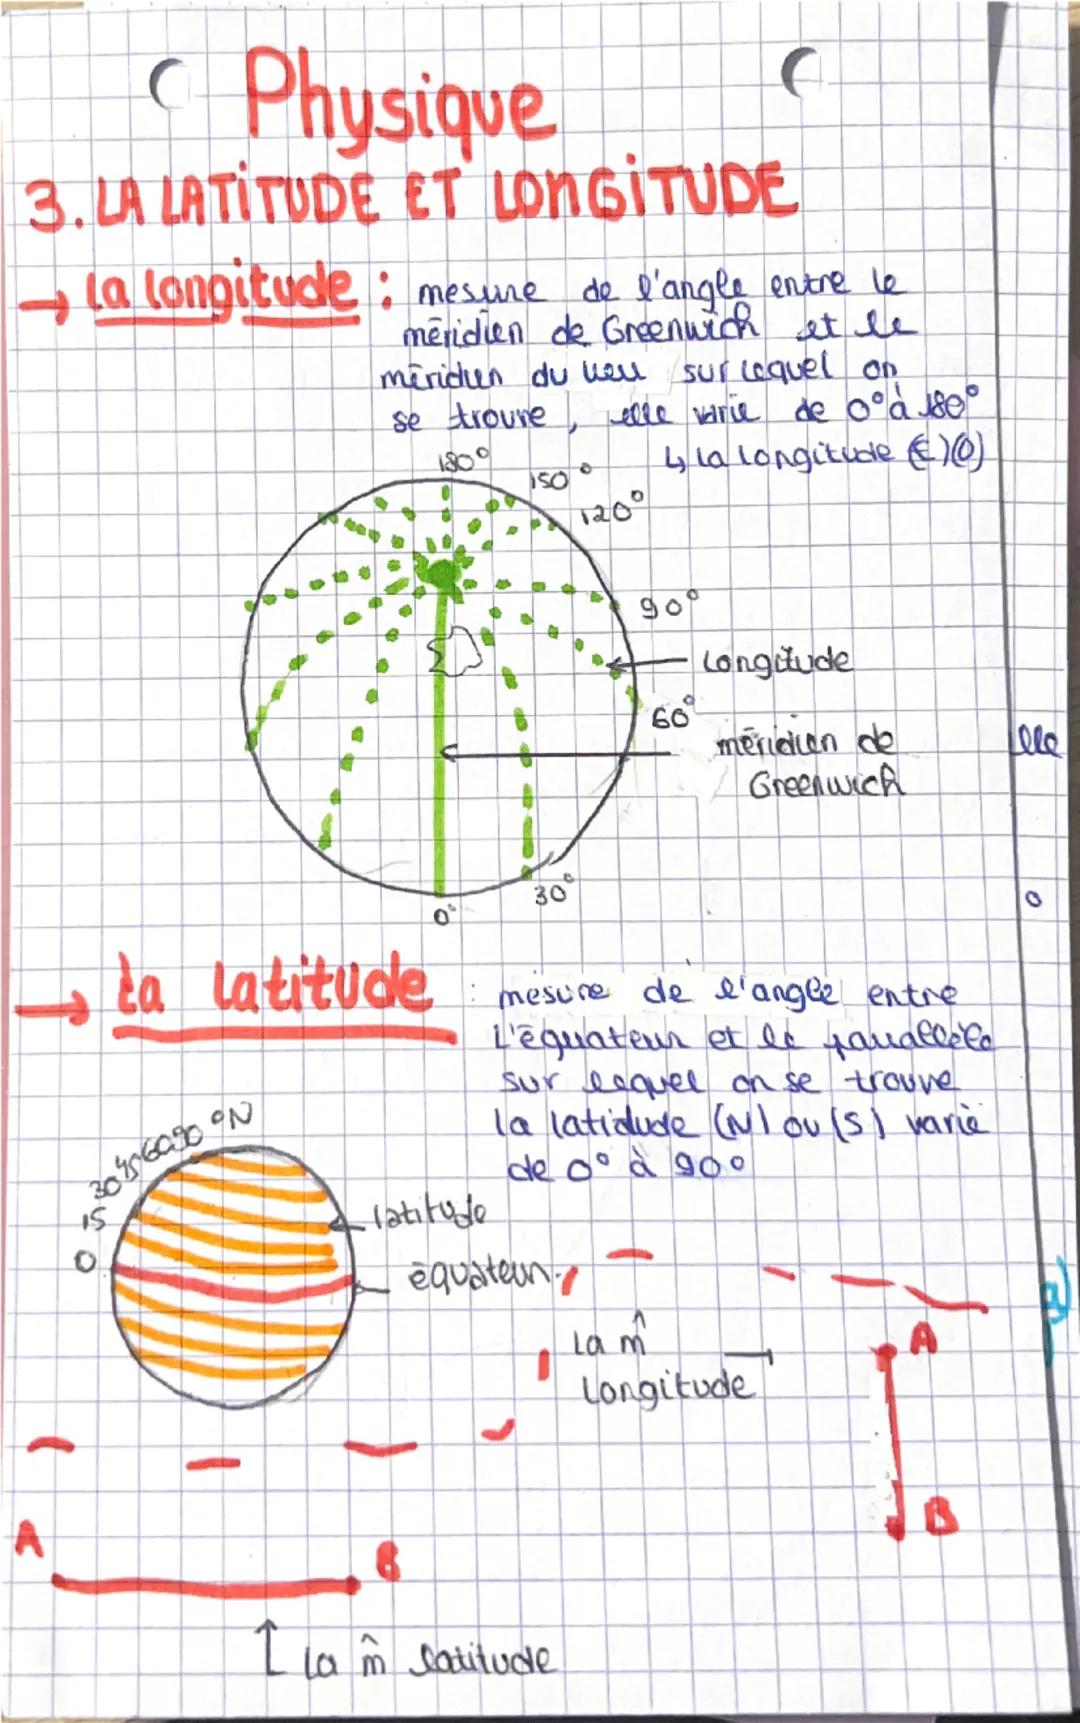 Physique
3. LA LATITUDE ET LONGITUDE
→ la longitude : mesure de l'angle entre le
méridien de Greenwich et le
méridien du lieu sur lequel on
se trouve, elle varie de 0° à 180°
↳ la longitude (E)(O)
180°
150°
120°
90°
longitude
60°
méridien de
Greenwich
elle
30°
0°
→ La latitude : mesure de l'angle entre
l'équateur et le parallèle
sur lequel on se trouve
la latidude (N) ou (S) varie
de 0° à 90°
0 15 30 45 60 90 °N
latitude
équateur
la m̂
longitude
A
B
A B
↑ la m̂ latitude